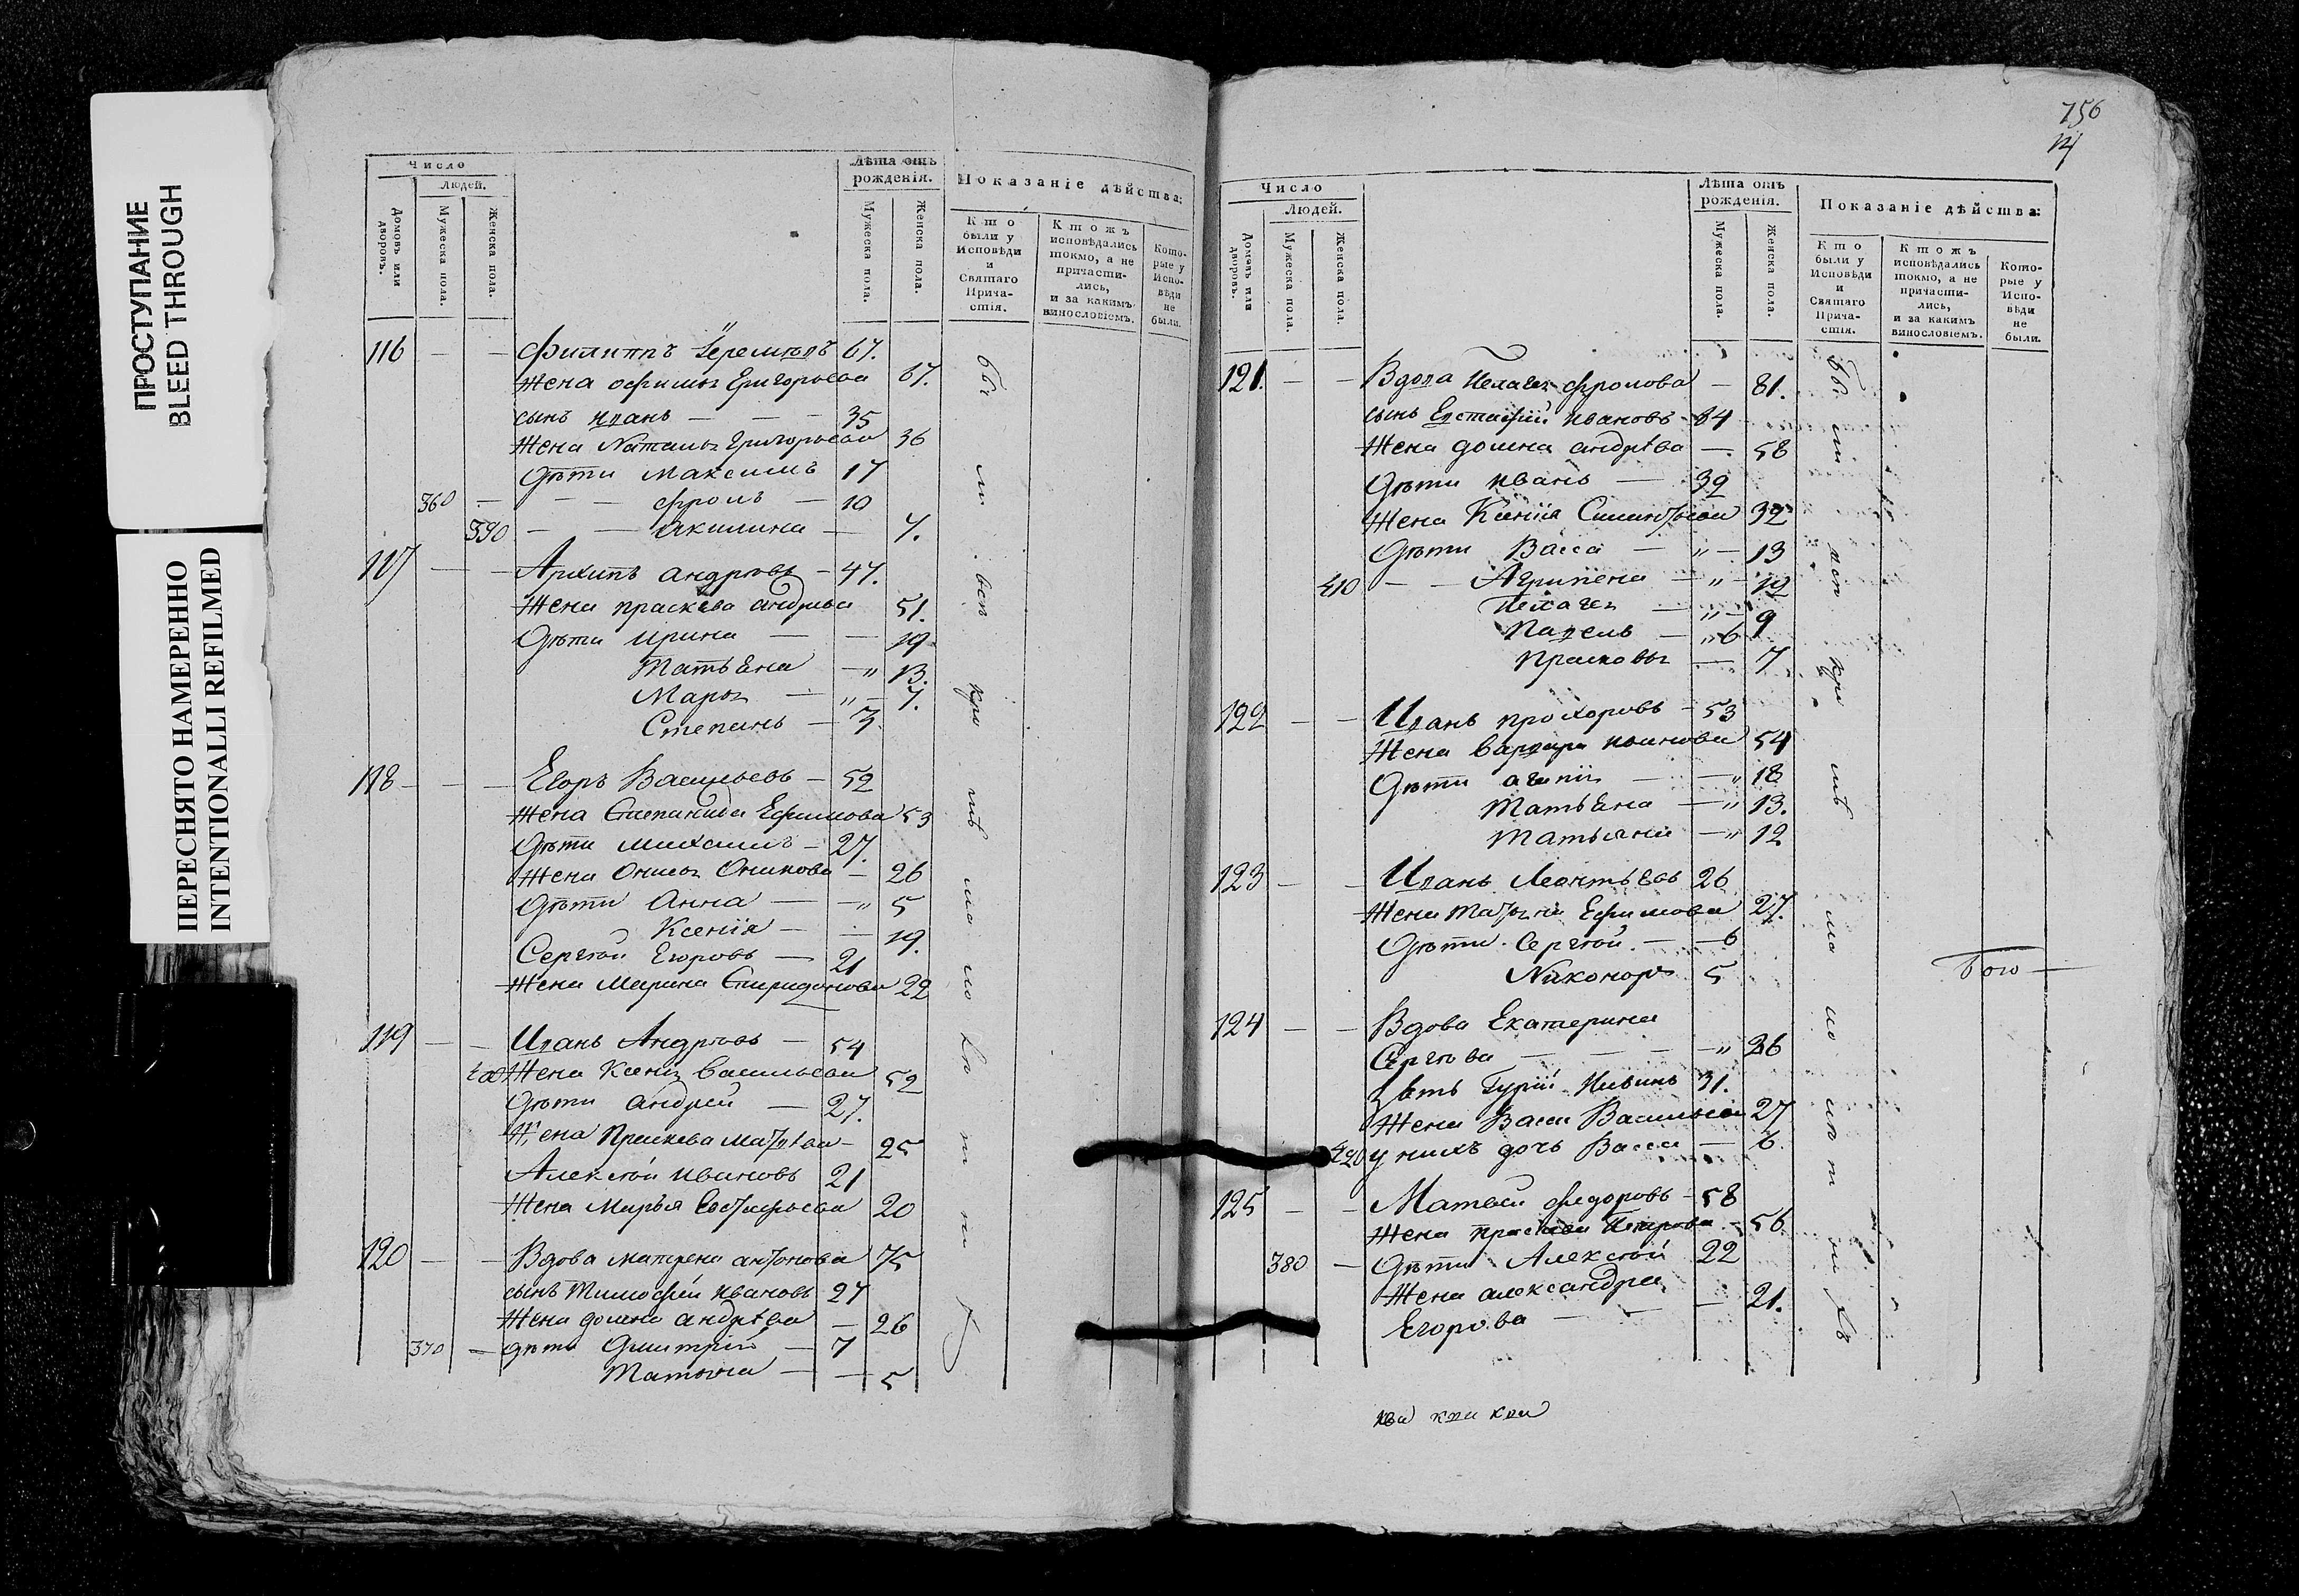 ПРОСТУПАНИЕ
BLEED THROUGH
ПЕРЕСНЯТО НАМЕРЕННО
INTENTIONALLI REFILMED
Число
Людей.
Домовъ или дворовъ.
Мужеска пола.
Женска пола.
Лѣта отъ рожденія.
Мужеска пола.
Женска пола.
Показаніе дѣйства:
Кто были у Исповѣди и Святаго Прича-стія.
Ктожъ исповѣдались токмо, а не причасти-лись, и за какимъ винословіемъ.
Кото-рые у Испо-вѣди не были.
116 — — Филипъ 67.
Жена Григорьева 67.
сынъ иванъ — — — 35
Жена Наталья Григорьева 36
дѣти Максимъ 17
360 — — — фролъ — 10
390 — — Акилина — 7.
117 — — Архипъ андрѣевъ — 47.
Жена праскева андреева 51.
дѣти ирина — — 19
Татьена — 〃 13.
Марья — 〃 — 7.
Степанъ — 3.
118 — — — Егоръ Васильевъ — 52
Жена Степанида Ефимова 53
дѣти михаилъ — 27.
Жена Онисья — 26
дѣти Анна — — 〃 5
Ксенiя — — 19.
Сергѣй Егоровъ — 21
Жена Марина Спиридонова 22
119 — — Иванъ Андрѣевъ — 54
400 Жена Ксенья васильева 52
дѣти андрей — 27.
Жена Праскева — 25
Алексѣй ивановъ 21
Жена Марья 20
120 — — Вдова матрена антонова 75
сынъ Тимофей ивановъ 27
Жена домна андрѣева — 26
370 — дѣти Дмитрій — 7
Татьяна — — 5
756
Число
Людей.
Домовъ или дворовъ.
Мужеска пола.
Женска пола.
Лѣта отъ рожденія.
Мужеска пола.
Женска пола.
Показаніе дѣйства:
Кто были у Исповѣди и Святаго Прича-стія.
Ктожъ исповѣдались токмо, а не причасти-лись, и за какимъ винословіемъ.
Кото-рые у Испо-вѣди не были.
121. — — Вдова Пелагея фролова — 81.
сынъ Евстафій ивановъ
Жена домна андрѣева — 58
дѣти иванъ — 39
Жена Ксенія 32
дѣти Васса — 〃 — 13
410 — — Агрипена — 〃 — 12
Пелагея — 〃 — 9
Павелъ — 〃 6
Прасковья — 7
122 — — Иванъ прохоровъ — 53
Жена варвара иванова 54
дѣти — 〃 18
Татьена — 〃 13.
Татьяна — 〃 12
123 — — Иванъ Леонтьевъ 26
Жена Ефимова 27.
дѣти Сергѣй — 6
Никоноръ 5
124 — — Вдова Екатерина
Сергѣева — — — 〃
Зять Гурій 31.
Жена Васса Васильева 27
420 у нихъ дочь Васса — 6.
125 — — Матвей федоровъ — 58
Жена Петрова — 56
380 — дѣти Алексѣй 22
Жена александра
Егорова — — 21.